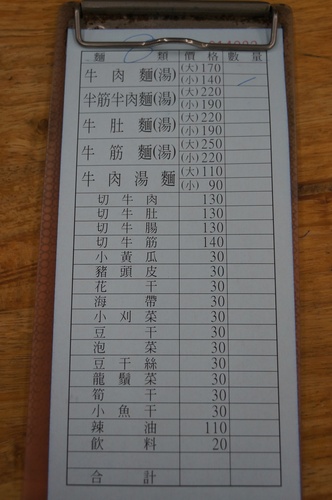 麵 類 價 格 數 量
牛肉麵(湯) (大)170
(小)140
半筋半肉麵(湯) (大)220
(小)190
牛肚麵(湯) (大)220
(小)190
牛筋麵(湯) (大)250
(小)220
牛肉湯麵 (大)110
(小)90
切牛肉 130
切牛肚 130
切牛腸 130
切牛筋 140
小黃瓜 30
豬頭皮 30
花干 30
海帶 30
小刈菜 30
豆干 30
泡菜 30
豆干絲 30
龍鬚菜 30
筍干 30
小魚干 30
辣油 110
飲料 20
合計